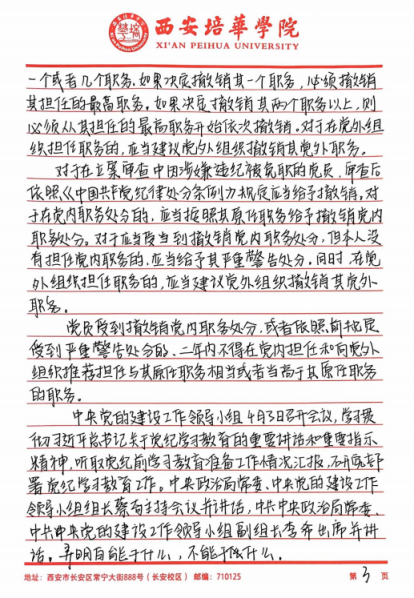 西安培華學院
XI'AN PEIHUA UNIVERSITY
一个或者几个职务。如果决定撤销其一个职务，必须撤销
其担任的最高职务。如果决定撤销其两个职务以上，则
必须从其担任的最高职务开始依次撤销。对于在党外组
织担任职务的，应当建议党外组织撤销其党外职务。
对于在立案审查中因涉嫌违纪被免职的党员，审查后
依照《中国共产党纪律处分条例》规定应当给予撤销，对
于在党内职务处分的，应当按照其原任职务给予撤销党内
职务处分。对于应当受到撤销党内职务处分，但本人没
有担任党内职务的，应当给予其严重警告处分。同时，在党
外组织担任职务的，应当建议党外组织撤销其党外
职务。
党员受到撤销党内职务处分，或者依照前款规定
受到严重警告处分的，二年内不得在党内担任和向党外
组织推荐担任与其原任职务相当或者高于其原任职务
的职务。
中央党的建设工作领导小组4月3日召开会议，学习贯
彻习近平总书记关于党纪学习教育的重要讲话和重要指示
精神，听取党纪学习教育准备工作情况汇报，研究部
署党纪学习教育工作。中央政治局常委、中央党的建设工作
领导小组组长蔡奇主持会议并讲话，中共中央政治局常委、
中共中央党的建设工作领导小组副组长李希出席并讲
话。弄明白能干什么，不能干什么。
地址：西安市长安区常宁大街888号（长安校区） 邮编：710125
第 3 页